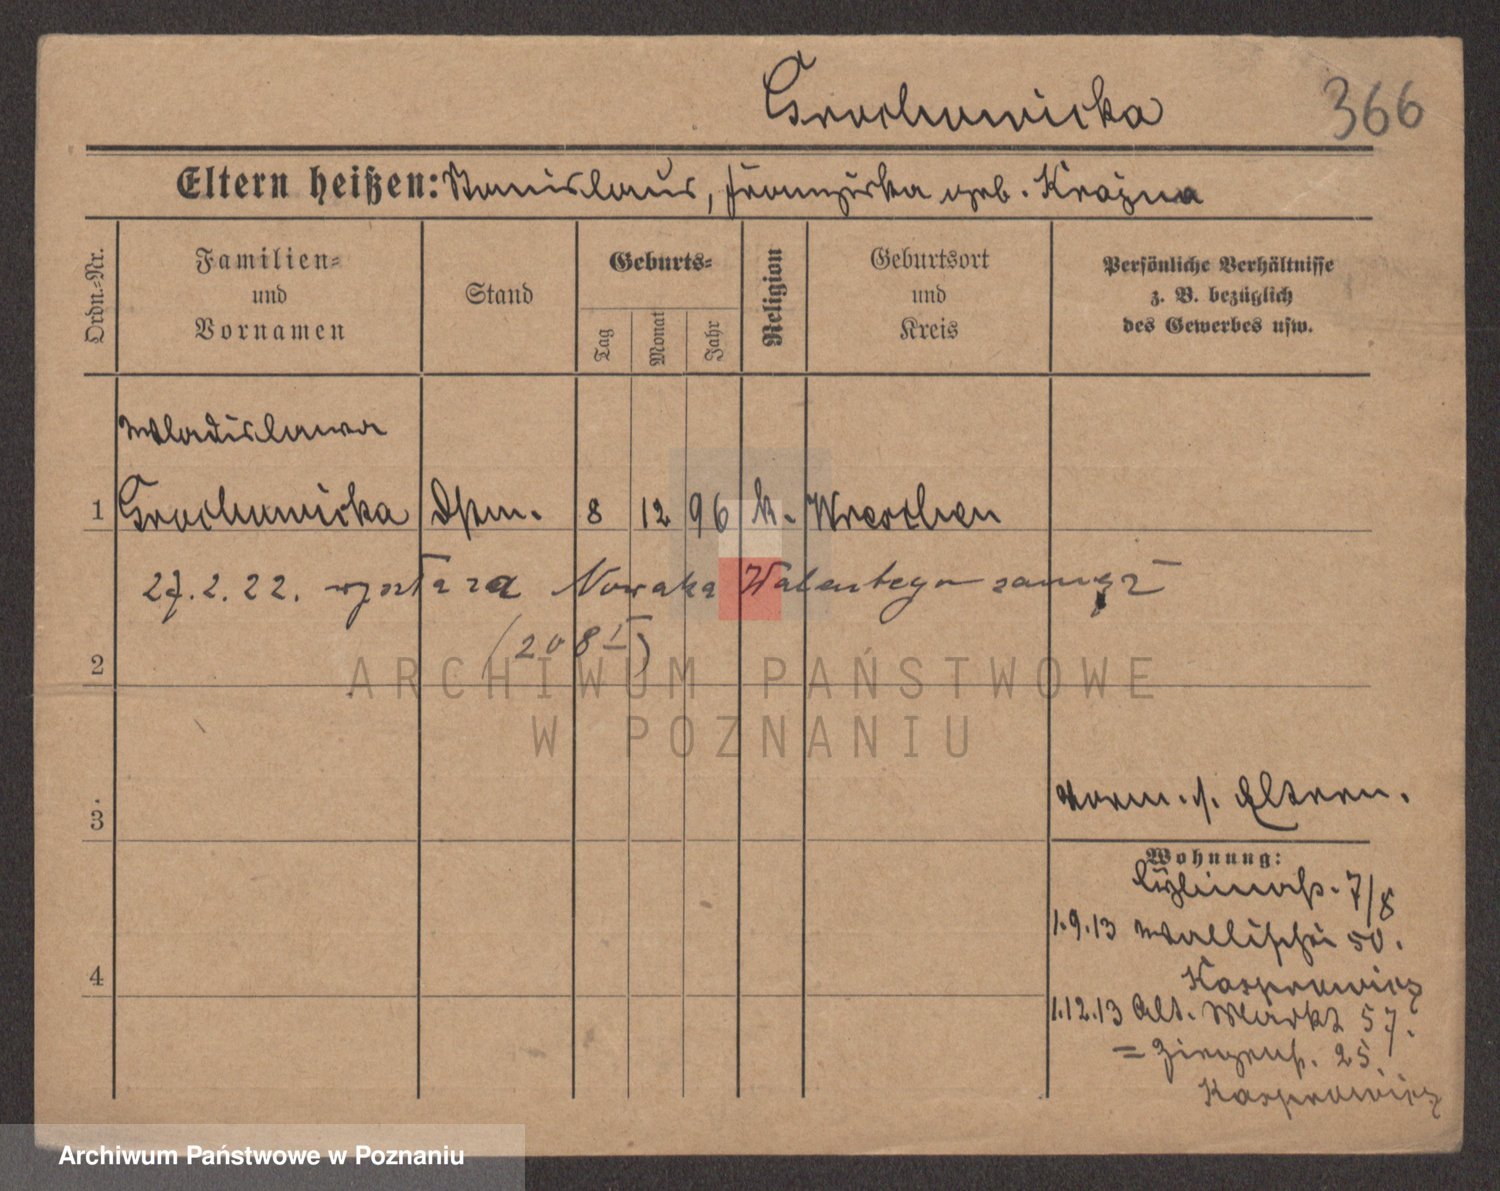 Grochowicka
366
Eltern heißen: Stanislaus, Franziska geb. Krajna
Ordn.-Nr.
Familien-
und
Vornamen
Stand
Geburts-
Tag
Monat
Jahr
Religion
Geburtsort
und
Kreis
Persönliche Verhältnisse
z. B. bezüglich
des Gewerbes usw.
Wladislawa
1 Grochowicka Dstm. 8 12 96 k. Wreschen
27.2.22. wyszła za Nowaka Walentego zamąż
(208 I)
2
ARCHIWUM PAŃSTWOWE
W POZNANIU
3
vorm. s. Eltern.
Wohnung:
7/8
1.9.13 Wallischei 50.
Kasprowicz
4
1.12.13 Alt. Markt 57.
= Ziegenstr. 25.
Kasprowicz
Archiwum Państwowe w Poznaniu